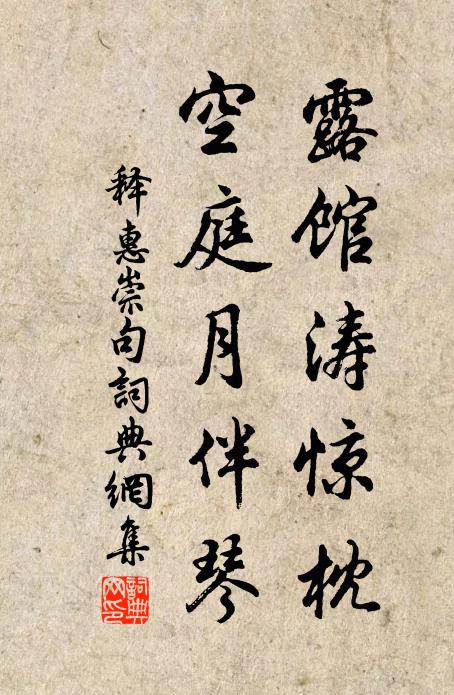 露馆涛惊枕
空庭月伴琴
释惠崇句詞典網集
詞典网印